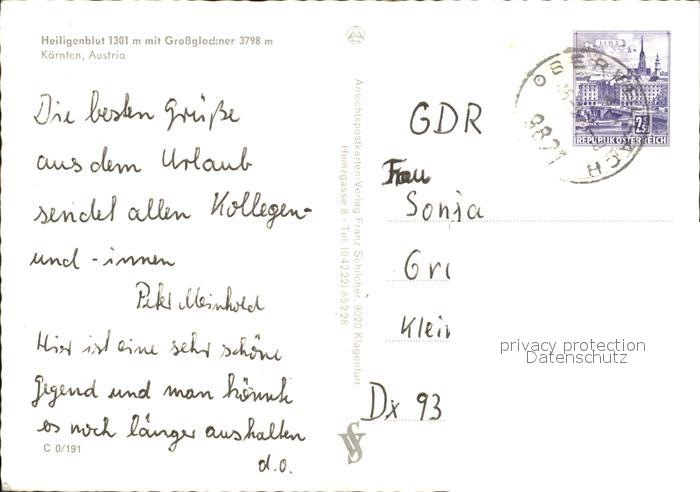 Heiligenblut 1301 m mit Großglockner 3798 m
Kärnten, Austria
Die besten Grüße
aus dem Urlaub
sendet allen Kollegen-
und -innen
Peter Meinhold
Hier ist eine sehr schöne
Gegend und man könnte
es noch länger aushalten
d.o.
C 0/191
Ansichtspostkarten-Verlag Franz Schilcher, 9020 Klagenfurt
Heinzgasse 8 - Tel. (04222) 85228
GDR
Frau
Sonja
Gr
Klei
Dx 93
LINZ
2S
REPUBLIK ÖSTERREICH
9821
privacy protection
Datenschutz